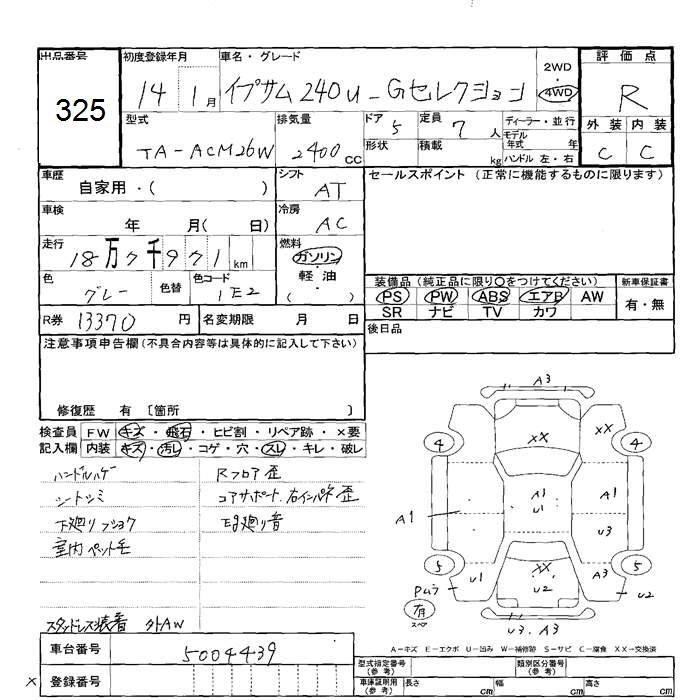 出品番号 初度登録年月 車名・グレード 2WD 評価点
325 14 1月 イプサム240u-Gセレクション 4WD R
型式 排気量 ドア 定員 ディーラー・並行 外装 内装
TA-ACM26W 2400CC 5 7人 モデル
年式 年
形状 積載 kg ハンドル 左・右 C C
車歴 自家用・( ) シフト AT セールスポイント(正常に機能するものに限ります)
車検 年 月( 日) 冷房 AC
走行 18万7千971km 燃料 ガソリン・軽油
( )
色 グレー 色替 色コード 1E2 装備品(純正品に限り○をつけてください) 新車保証書
PS PW ABS エアB AW
SR ナビ TV カワ 有・無
R券 13370円 名変期限 月 日 後日品
注意事項申告欄(不具合内容等は具体的に記入して下さい)
修復歴 有 〔箇所 〕
検査員 FW キズ・飛石・ヒビ割・リペア跡・×要
記入欄 内装 キズ・汚レ・コゲ・穴・スレ・キレ・破レ
ハンドルハゲ Rフロア歪
シートシミ コアサポート、右インパネ歪
下廻りフショク Eg廻り音
室内ペット毛
スタッドレス装着 外AW
A3
XX XX
4 4
A1 A1
U1
A1 U3
5 5
U1 XX A3
U2 U2
Pムラ
有
スペア
U3.A3
A-キズ E-エクボ U-凹み W-補修跡 S-サビ C-腐食 XX-交換済
車台番号 5004439
× 登録番号
型式指定番号
(参考) 類別区分番号
(参考)
車庫証明用
(参考) 長さ cm 幅 cm 高さ cm